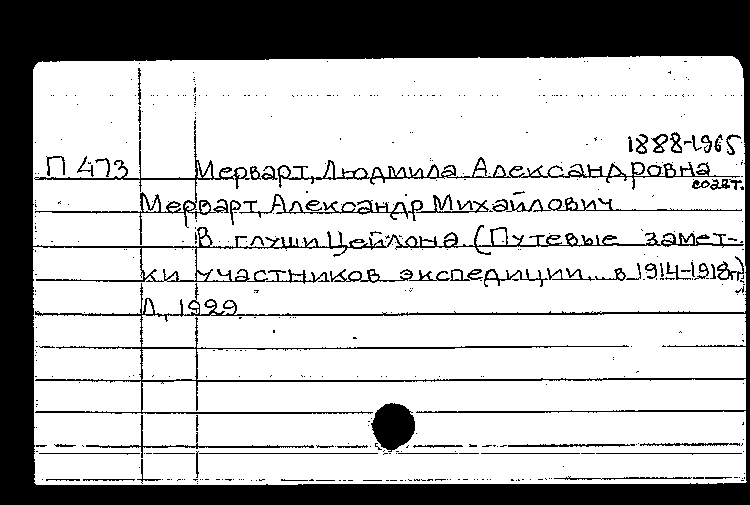 1888-1965
П 473 Мерварт, Людмила Александровна
соавт.
Мерварт, Александр Михайлович
В глуши Цейлона. (Путевые замет-
ки участников экспедиции... в 1914-1918гг)
Л., 1929.